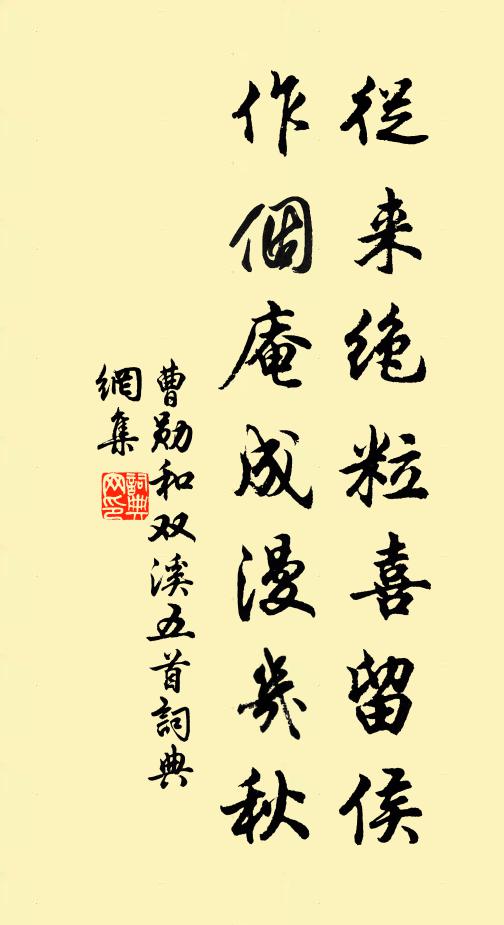 從来绝粒喜留侯
作個庵成漫幾秋
曹勋和双溪五首詞典
網集
詞典
网印